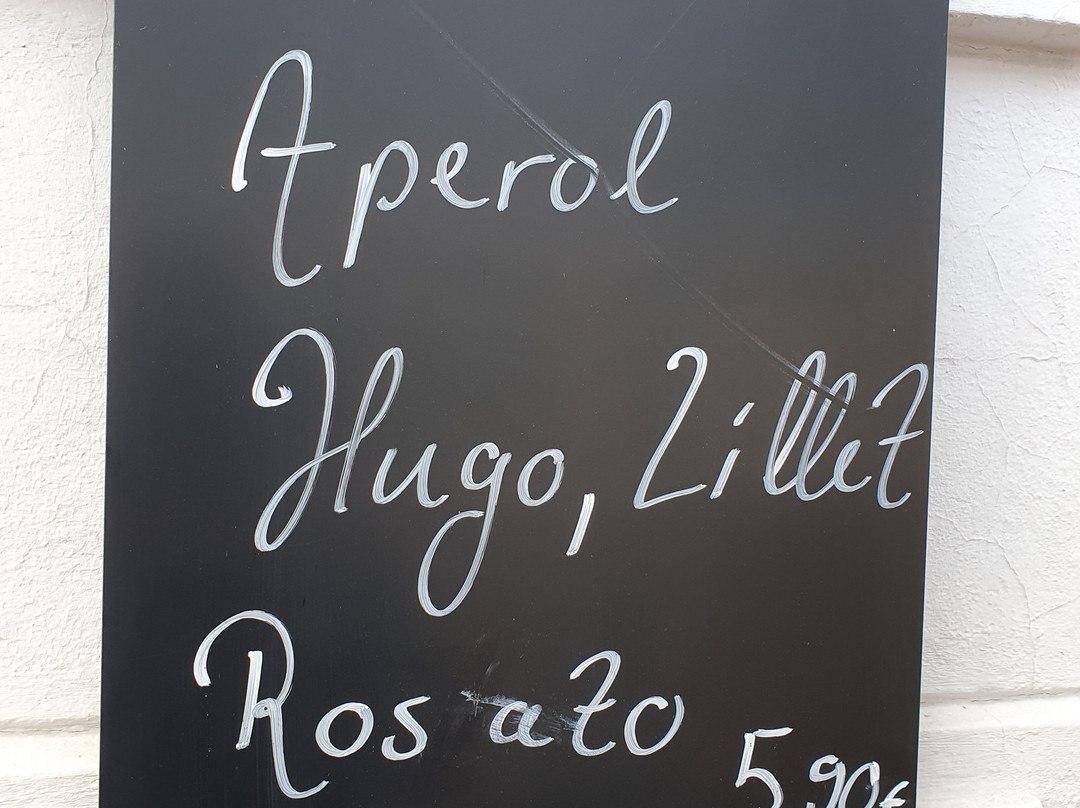 Aperol
Hugo, Lillet
Rosato
5,90€